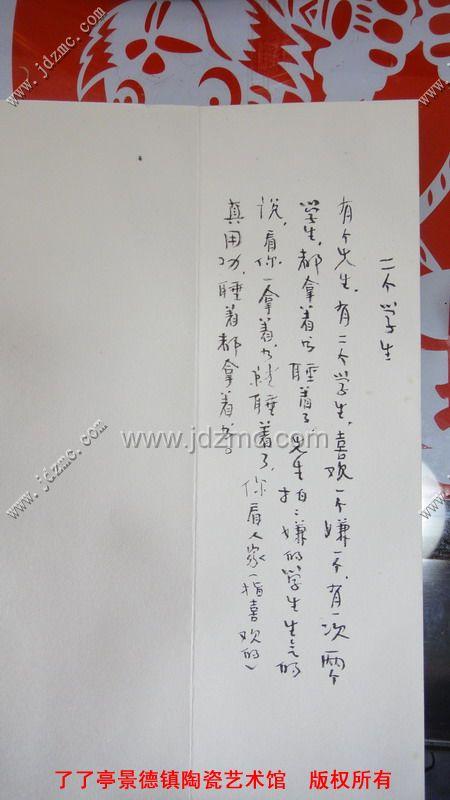 二个学生
有个先生，有二个学生，喜欢一个嫌一个，有一次两个
学生，都拿着书睡着了，先生拍拍嫌的学生生气的
说，看你一拿着书就睡着了，你看人家（指喜欢的）
真用功，睡着都拿着书。
www.jdzmc.com
www.jdzmc.com
www.jdzmc.com
www.jdzmc.com
www.jdzmc.com
了了亭景德镇陶瓷艺术馆 版权所有